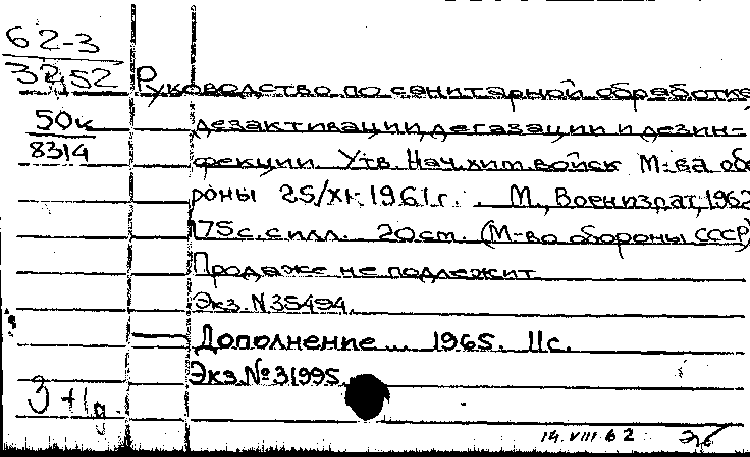 62-3
32,52
Руководство по санитарной обработке
50к
8314
дезактивации, дегазации и дезин-
фекции. Утв. Нач. хим. войск М-ва обо
роны 25/XI-1961г. М., Воениздат, 1962
175с. с илл. 20см. (М-во обороны СССР)
Продаже не подлежит
Экз. N35494.
Дополнение... 1965. 11с.
Экз. №31995.
3+1д.
14.VIII 62